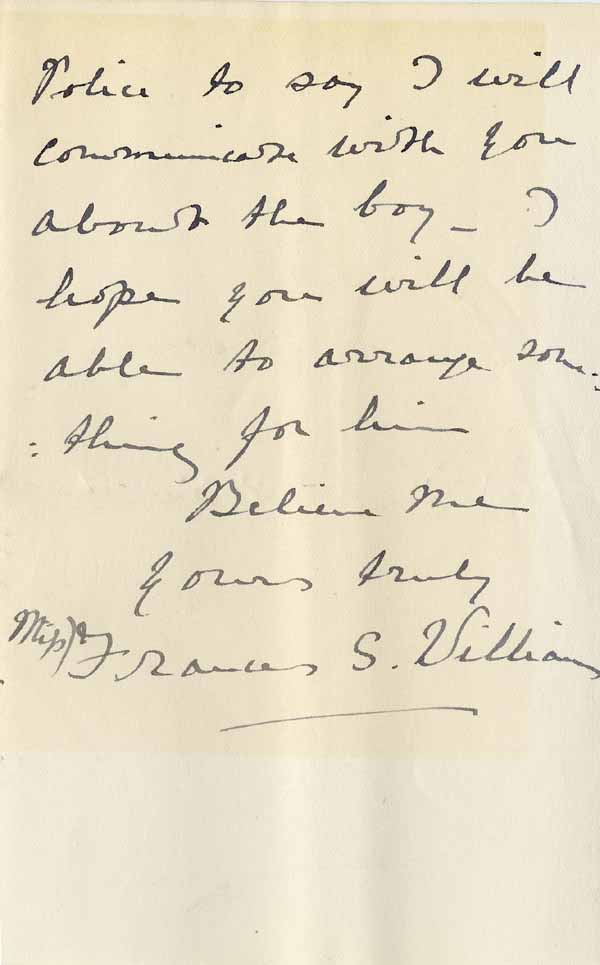 Police to say I will
communicate with you
about the boy - I
hope you will be
able to arrange some:
: thing for him
Believe me
yours truly
(Miss) Frances S. Williams